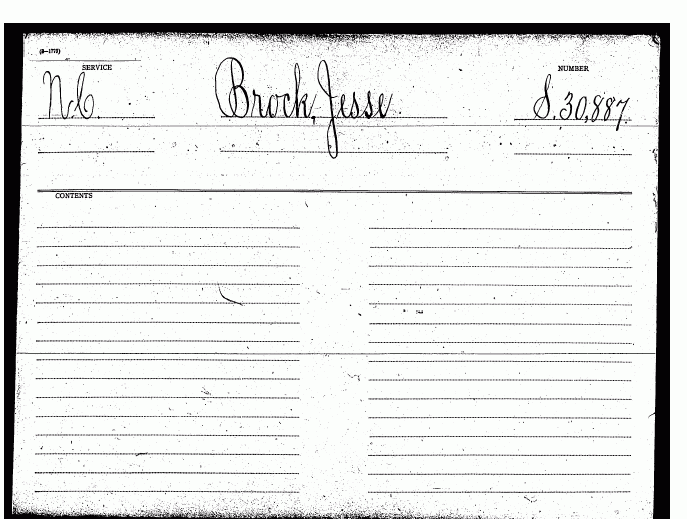 (3—1772)
SERVICE
NUMBER
N.C. Brock, Jesse S.30,887.
CONTENTS